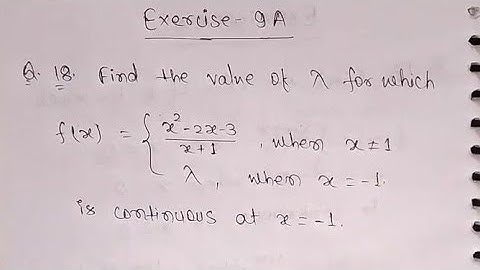 Exercise - 9A
Q. 18. Find the value of λ for which
f(x) = { x²-2x-3 / x+1 , when x ≠ 1
λ , when x = -1.
is continuous at x = -1.